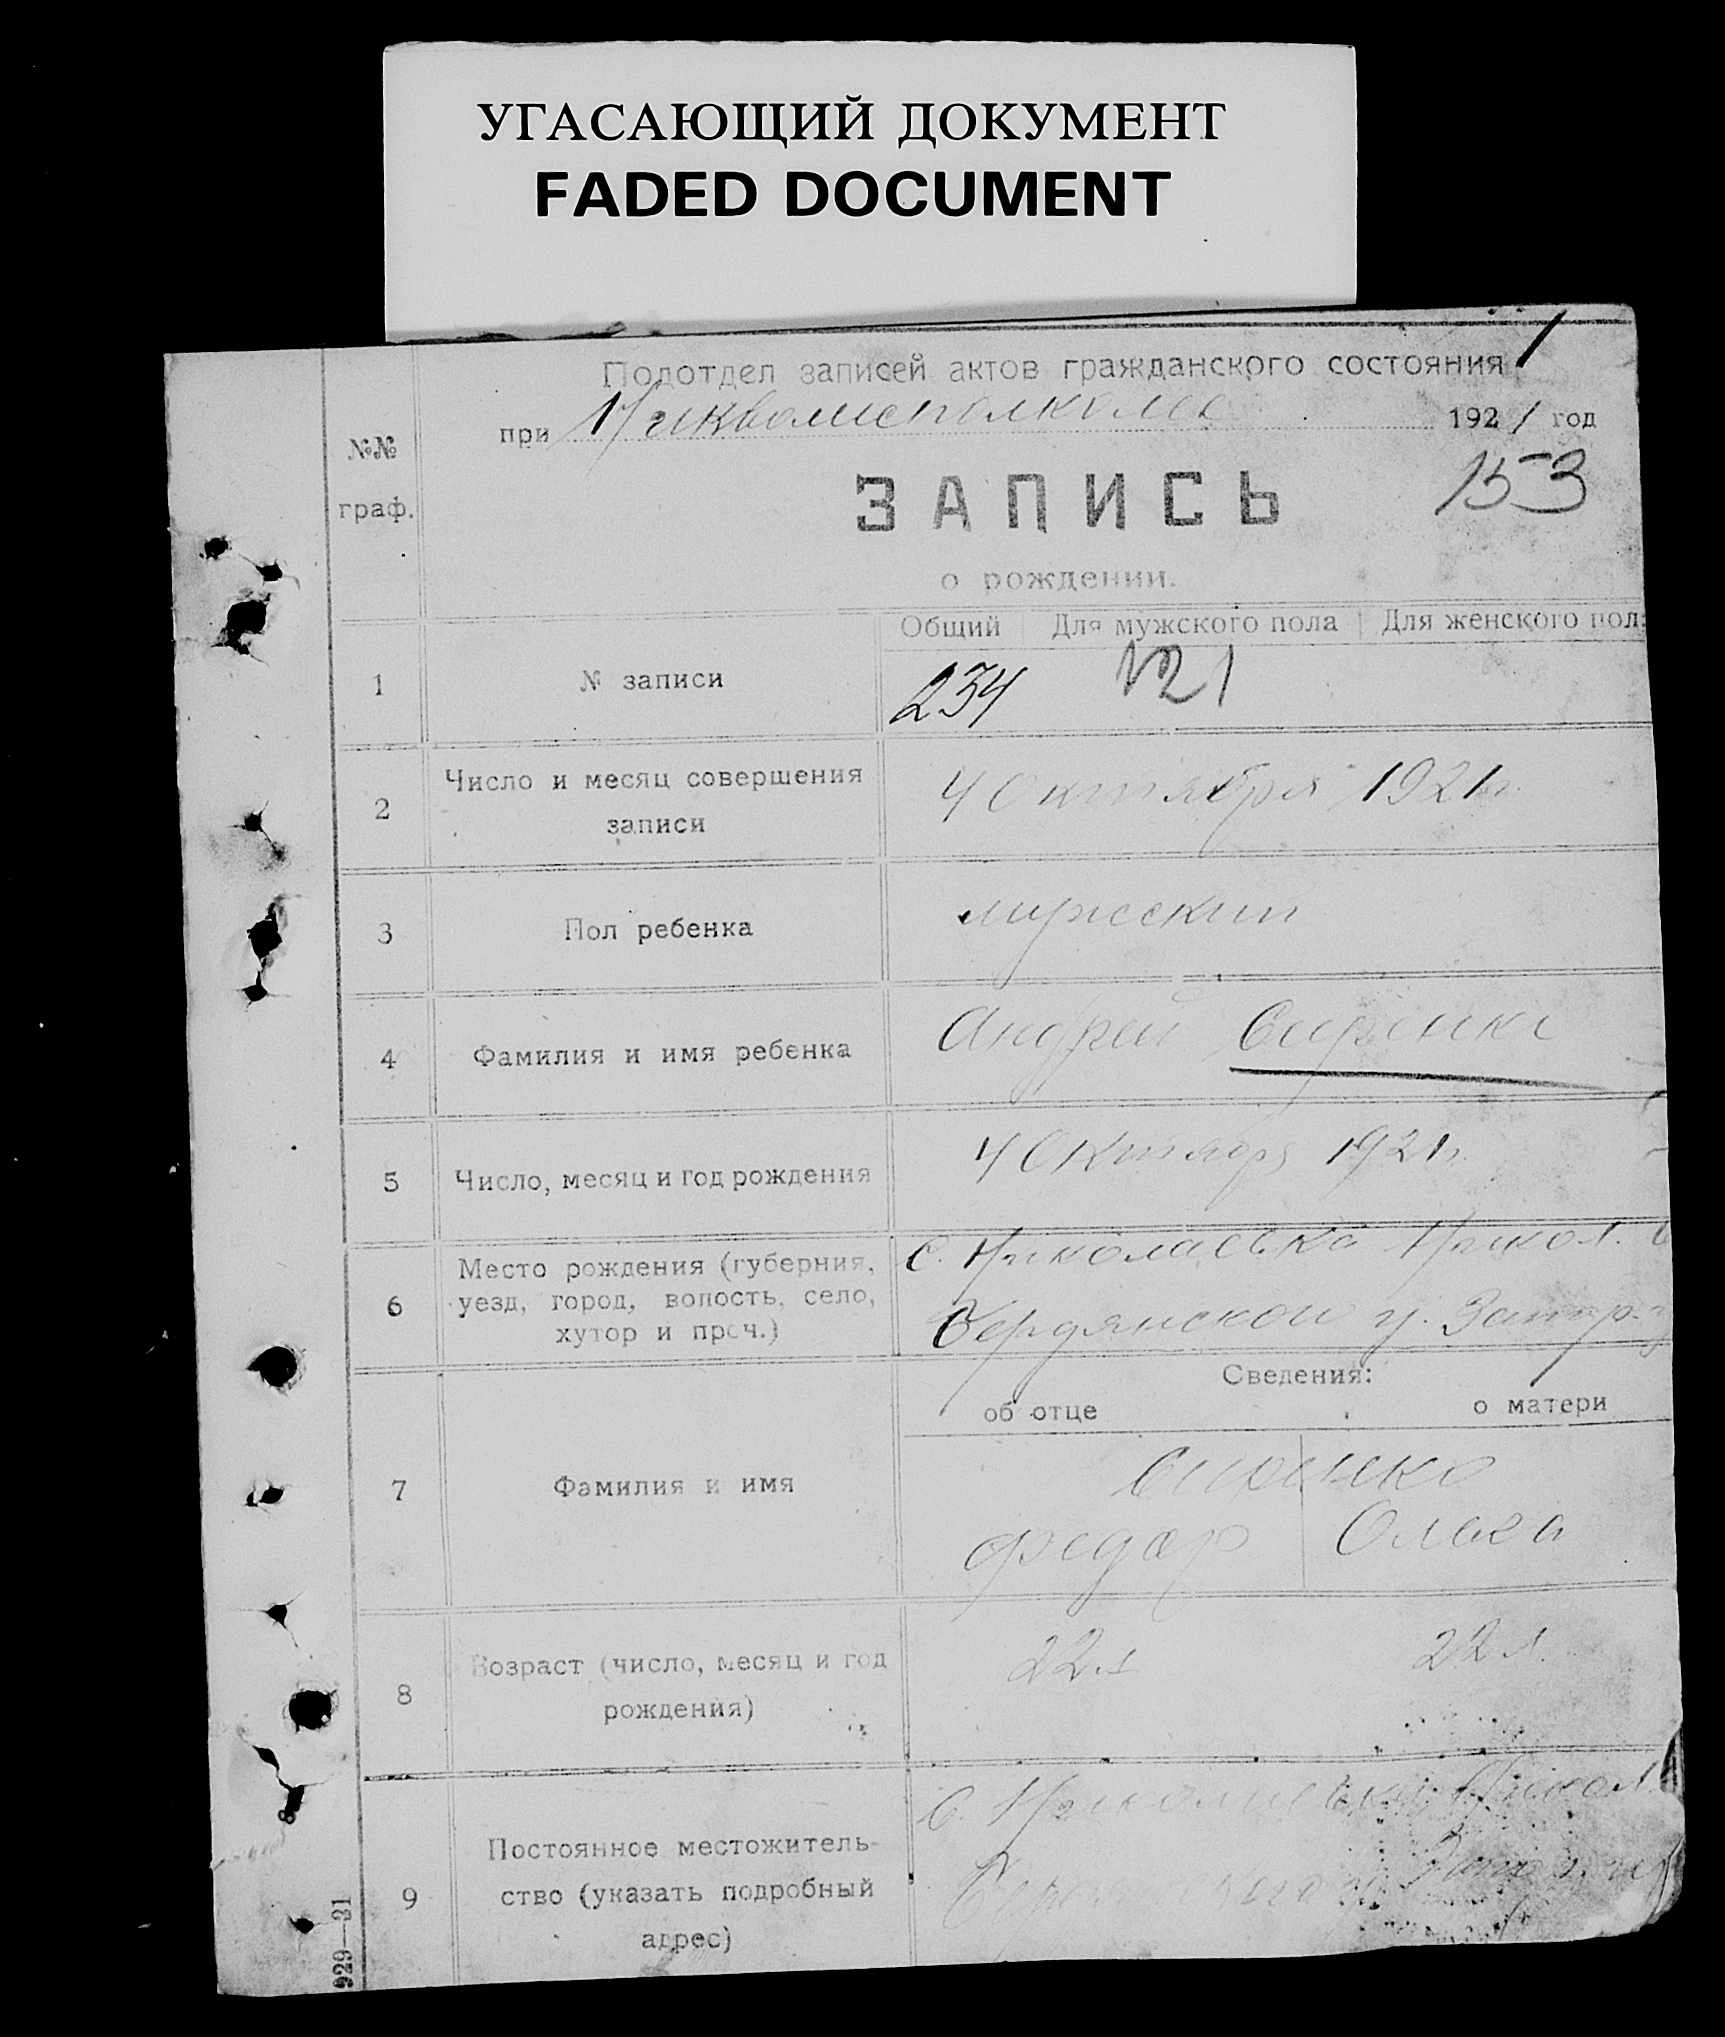 УГАСАЮЩИЙ ДОКУМЕНТ
FADED DOCUMENT
1
Подотдел записей актов гражданского состояния
при 1921 год
№№
граф.
ЗАПИСЬ
153
о рождении.
Общий Для мужского пола Для женского пол
1 № записи 234 121
2 Число и месяц совершения
записи
4 Октября 1921г.
3 Пол ребенка
мужский
4 Фамилия и имя ребенка Андрей
5 Число, месяц и год рождения 4 Октябр 1921г.
6 Место рождения (губерния,
уезд, город, волость, село,
хутор и проч.)
С. Николаевка Никол.
Бердянской у. Запор.
Сведения:
об отце о матери
7 Фамилия и имя
Федор Ольга
8 Возраст (число, месяц и год
рождения)
22 л 22 л.
9 Постоянное местожитель-
ство (указать подробный
адрес)
С. Николаевка Никол.
929—21